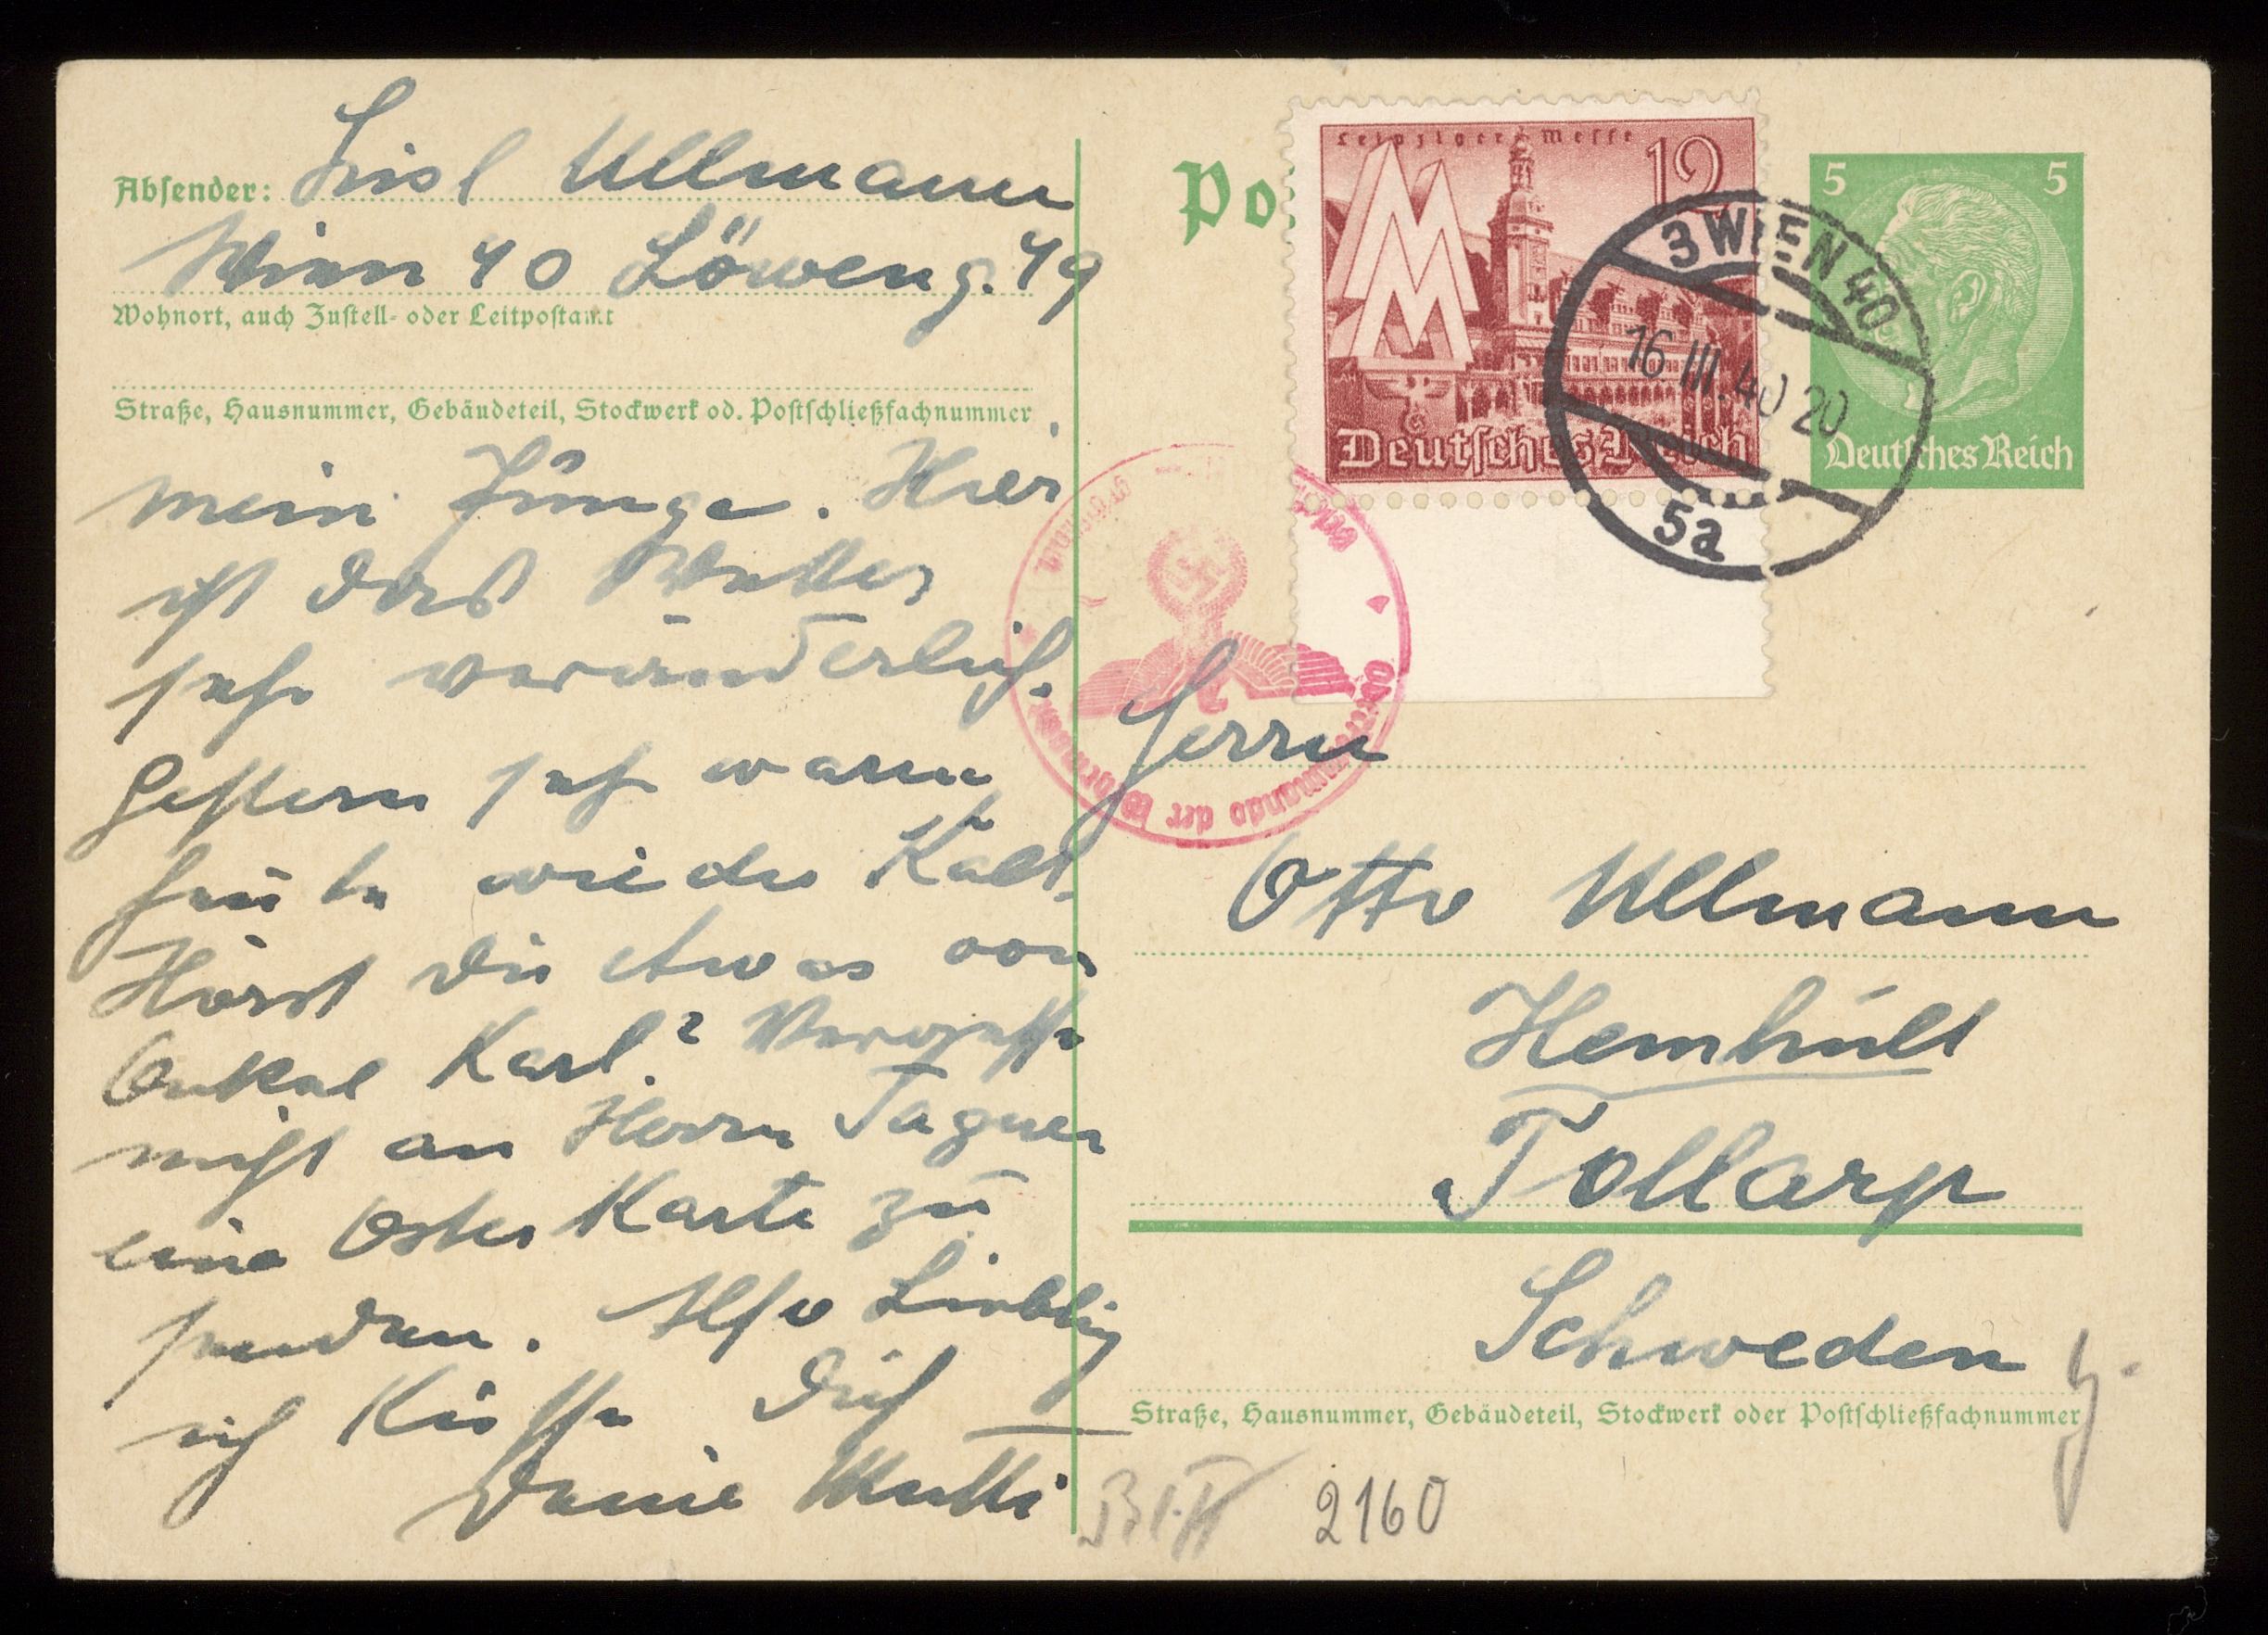 Absender: Lisl Ullmann
Wien 40 Löweng. 49
Wohnort, auch Zustell- oder Leitpostamt
Straße, Hausnummer, Gebäudeteil, Stockwerk od. Postschließfachnummer
mein Junge. Hier
ist das Wetter
sehr veränderlich.
Gestern sehr warm
heute wieder Kalt.
Hörst Du etwas von
Onkel Karl? Vergesse
nicht an Herrn Tagner
eine Oster Karte zu
senden. Also Liebling
ich Küsse Dich
Deine Mutti
Po
Leipziger Messe 12
MM
Deutsches Reich
5 5
Deutsches Reich
3 WIEN 40
16 III. 40 20
5a
Oberkommando der Wehrmacht
geöffnet
Herrn
Otto Ullmann
Hemhult
Tollarp
Schweden
Straße, Hausnummer, Gebäudeteil, Stockwerk oder Postschließfachnummer
2160